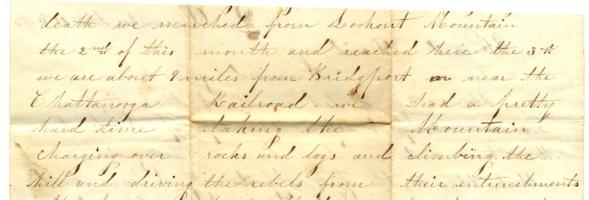 death we marched from Lookout Mountain
the 2nd of this month and reached here the 3th
we are about 9 miles from Bridgport on near the
Chattanooga Railroad we had a pretty
hard time taking the Mountain
charging over rocks and logs and climbing the
hill and driving the rebels from their entrenchments